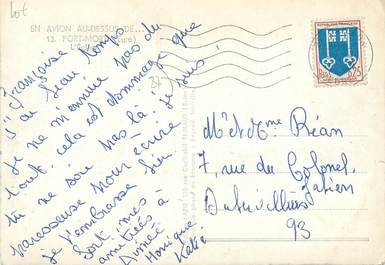 lot
EN AVION AU-DESSUS DE...
13. PORT-MORT (Eure)
REPUBLIQUE FRANÇAISE
0,25
27
Françoise
J'ai beau temps
Je ne m'ennuie pas du
tout, cela est dommage que
tu ne sois pas là. Je suis
paresseuse pour écrire
je t'embrasse bien
fort mes
amitiés à
Monique
Katie
Mr et Mme Réan
7, rue du Colonel
Fabien
Aubervilliers
93